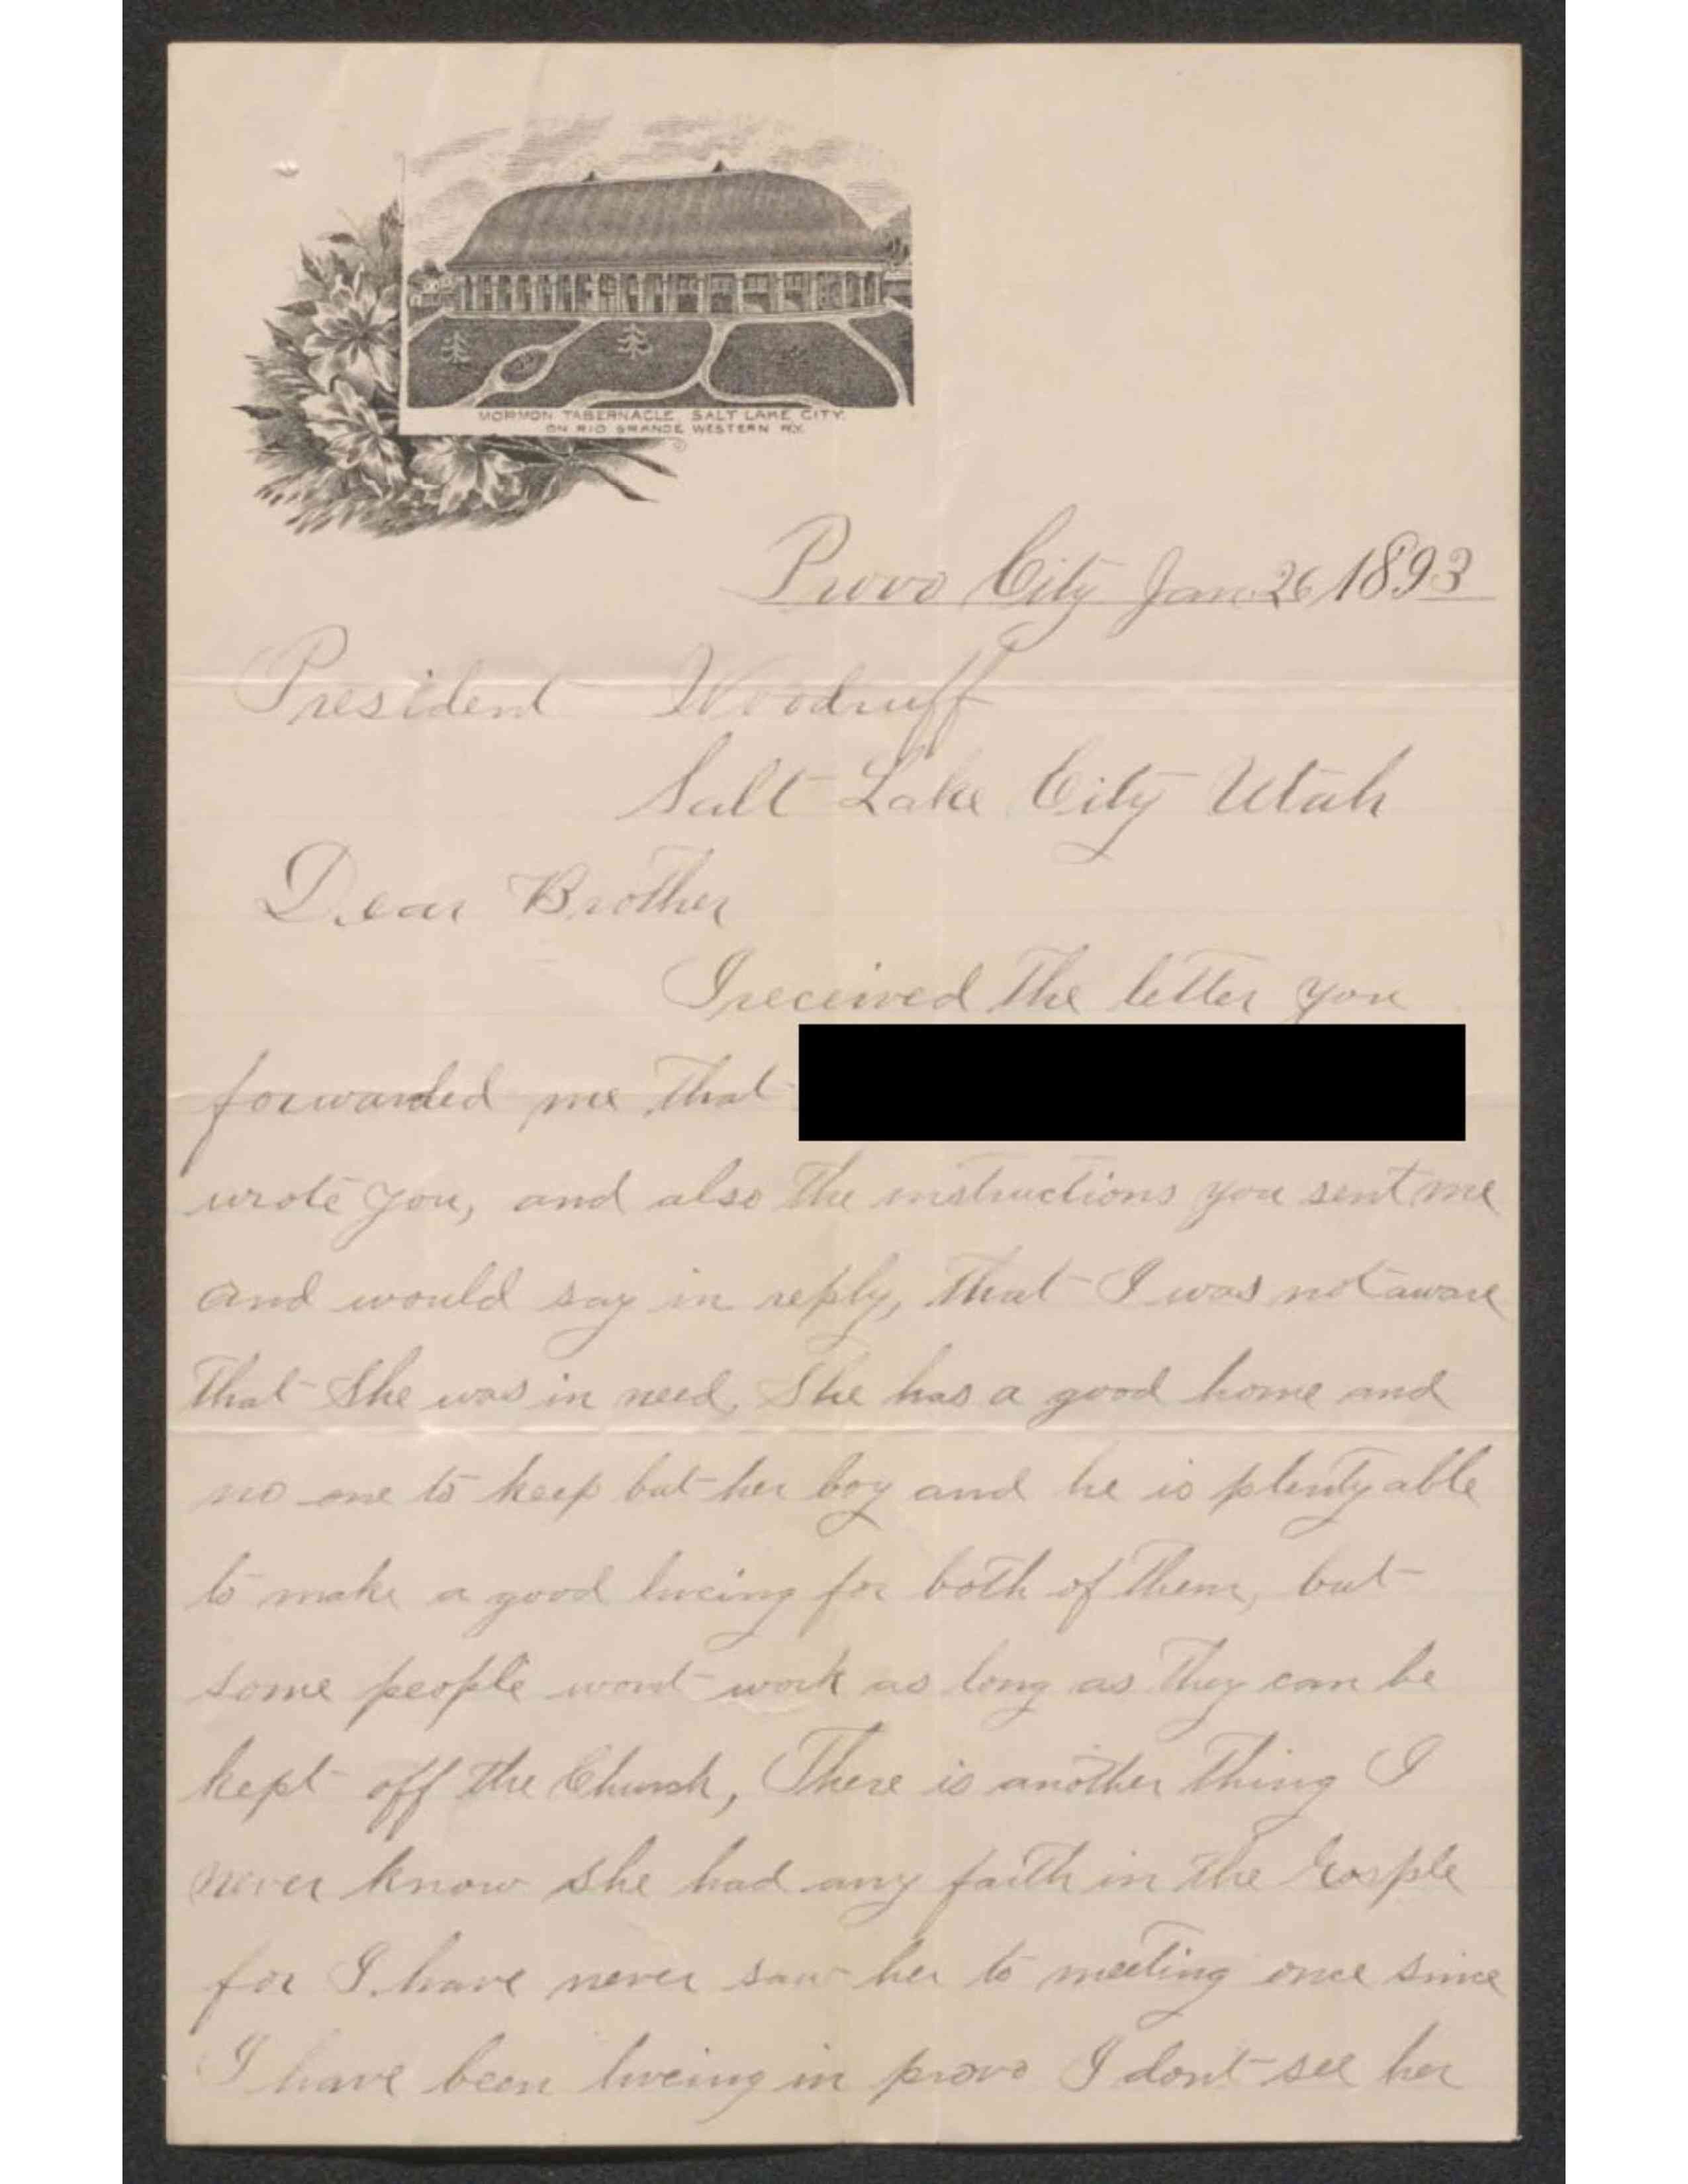 MORMON TABERNACLE, SALT LAKE CITY.
ON RIO GRANDE WESTERN RY.
Provo City Jan. 26 1893
President Woodruff
Salt Lake City Utah
Dear Brother
I received the letter you
forwarded me that
wrote you, and also the instructions you sent me
and would say in reply, that I was not aware
that She was in need, She has a good home and
no one to keep but her boy and he is plenty able
to make a good liveing for both of them, but
some people wont work as long as they can be
kept off the Church, There is another thing I
never know she had any faith in the Gosple
for I have never saw her to meeting once since
I have been liveing in provo I dont see her